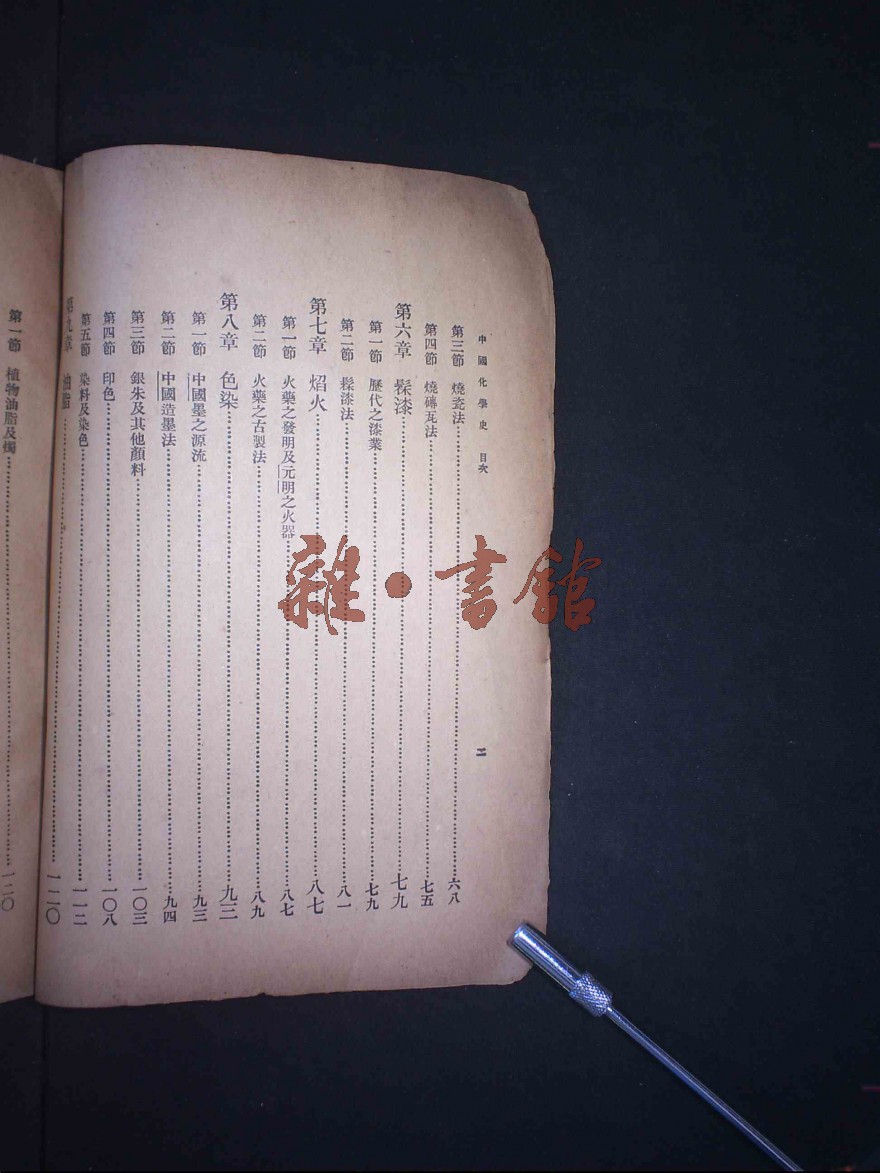 中國化學史 目次 二
第三節 燒瓷法 六八
第四節 燒磚瓦法 七五
第六章 髹漆 七九
第一節 歷代之漆業 七九
第二節 髹漆法 八一
第七章 焰火 八七
第一節 火藥之發明及元明之火器 八七
第二節 火藥之古製法 八九
第八章 色染 九三
第一節 中國墨之源流 九三
第二節 中國造墨法 九四
第三節 銀朱及其他顏料 一〇三
第四節 印色 一〇八
第五節 染料及染色 一一二
第九章 油脂 一二〇
第一節 植物油脂及燭 一二〇
雜·書館